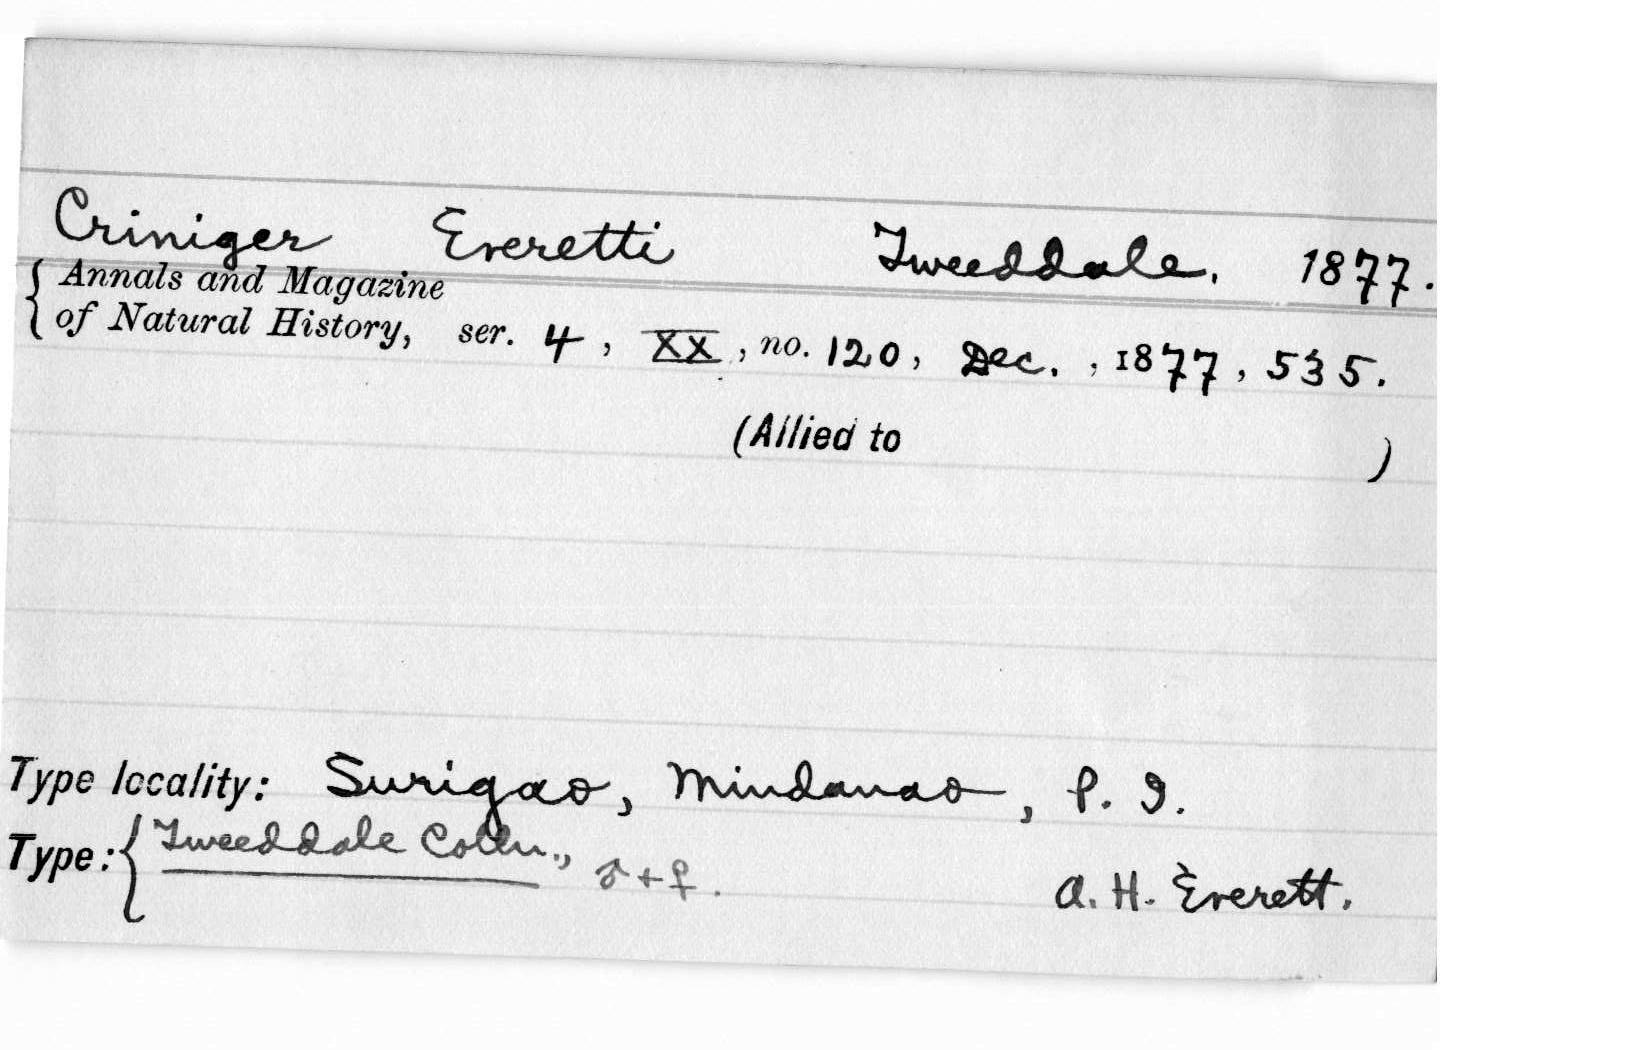 Criniger Everetti Tweeddale. 1877.
Annals and Magazine
of Natural History, ser. 4, XX, no. 120, Dec., 1877, 535.
(Allied to )
Type locality: Surigao, Mindanao, P. I.
Type: Tweeddale Colln., ♂ + ♀.
A. H. Everett.